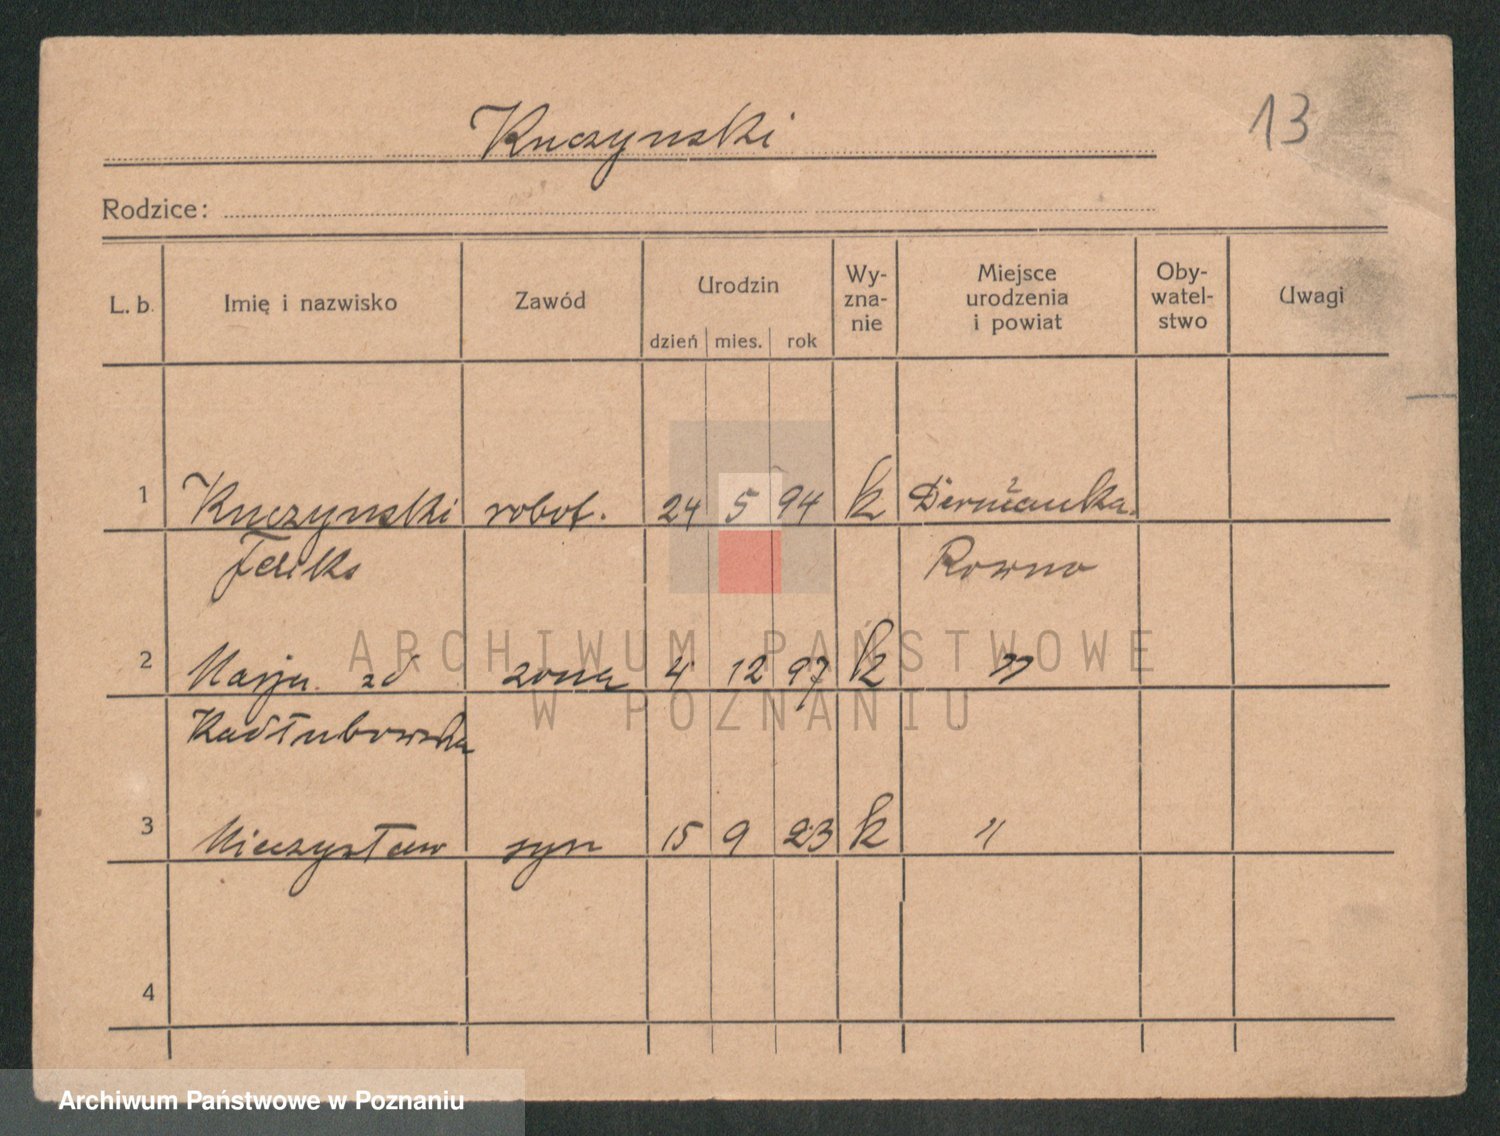 13
Kuczynski
Rodzice:
L. b. Imię i nazwisko Zawód Urodzin Wy-zna-nie Miejsce urodzenia i powiat Oby-watel-stwo Uwagi
dzień mies. rok
1 Kuczynski robot. 24 5 94 k Dernżanka.
Feliks Rowno
2 Marja zd zona 4 12 97 k "
Kadłubowska
3 Mieczysław syn 15 9 23 k "
4
ARCHIWUM PAŃSTWOWE
W POZNANIU
Archiwum Państwowe w Poznaniu